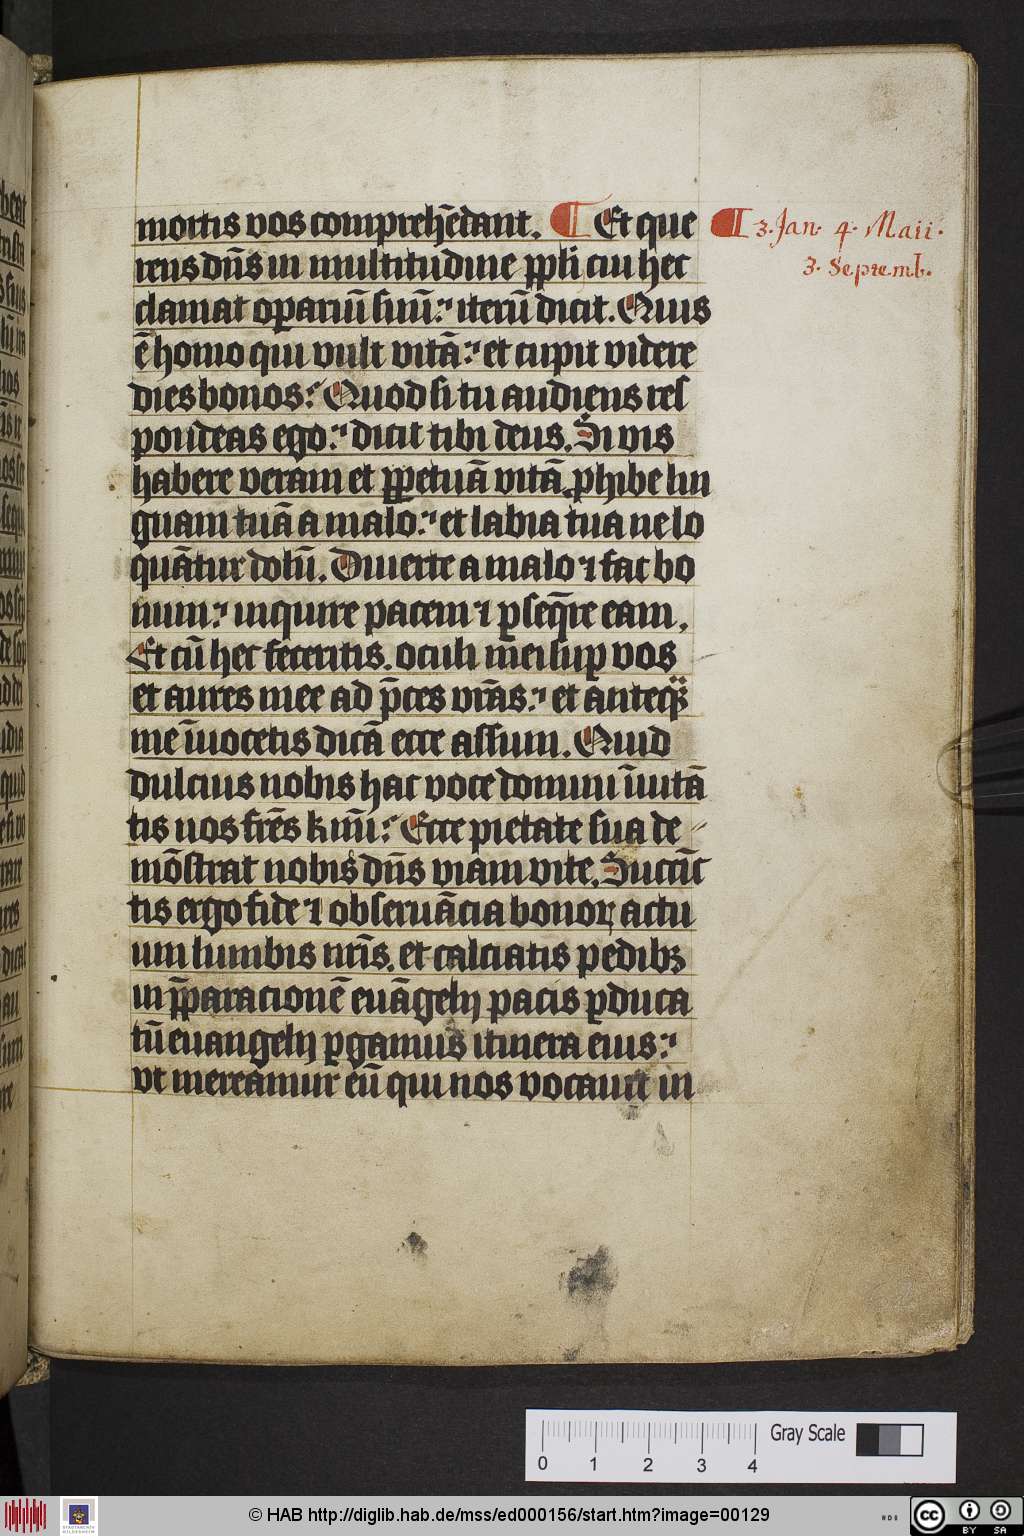 mortis vos comprehēdant. ¶ Et que
rens dn̄s in multitudine ꝓpli cui hec
clamat oꝑariū suū: iterū dicit. Quis
ē homo qui vult vitā: et cupit videre
dies bonos: Quod si tu audiens res
pondeas ego: dicit tibi deus. Si vis
habere veram et ꝑpetuā vitā ꝓhibe lin
guam tuā a malo: et labia tua ne lo
quātur dolū. Diuerte a malo ⁊ fac bo
num: inquire pacem ⁊ ꝑseq̄re eam.
Et cū hec feceritis. oculi mei suꝑ vos
et aures mee ad p̄ces vr̄as: et anteqͣ
me īuocetis dicā ecce assum. Quid
dulcius nobis hac voce domini īuitā
tis nos fr̄es kīmi: Ecce pietate sua de
mōstrat nobis dn̄s viam vite. Succīc
tis ergo fide ⁊ obseruācia bonoꝝ actu
um lumbis nr̄is. et calciatis pedibꝫ
in p̄paracionē euāgelij pacis ꝑ duca
tū euangelij ꝑgamus itinera eius:
vt mereamur eū qui nos vocauit in
¶ 3. Jan. 4. Maii.
3. Septemb.
Gray Scale
0 1 2 3 4
© HAB http://diglib.hab.de/mss/ed000156/start.htm?image=00129
cc BY SA